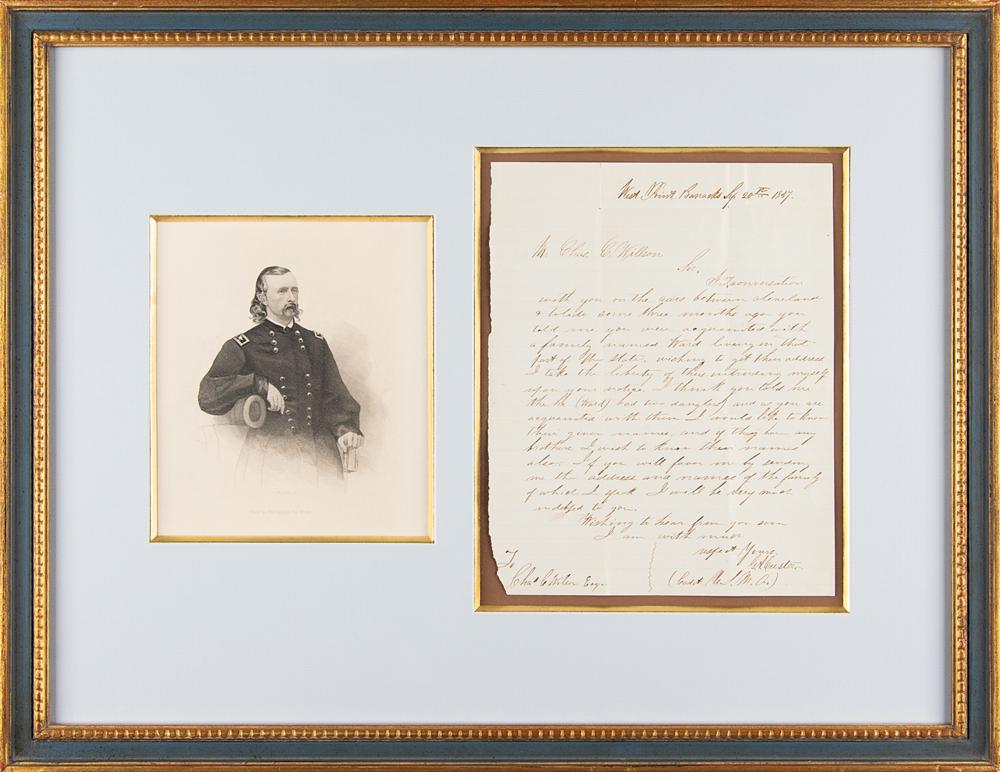 West Point Barracks Sep 20th 1857.
Mr Chas. C. Willson
Sir,
In conversation
with you on the cars between Cleveland
& Toledo some three months ago you
told me you were acquainted with
a family named Ward living in that
part of the state, wishing to get their address
I take the liberty of thus introducing myself
upon your notice. I think you told me
the he (Ward) had two daughters and as you are
acquainted with them I would like to know
their given names, and if they have any
brothers I wish to know their names
also. If you will favor me by sending
me the address and names of the family
of which I speak I will be very much
indebted to you.
Wishing to hear from you soon
I am with much
respect Yours,
G A Custer
To
Chas C Wilson Esq.
(Cadet U.S.M.A.)